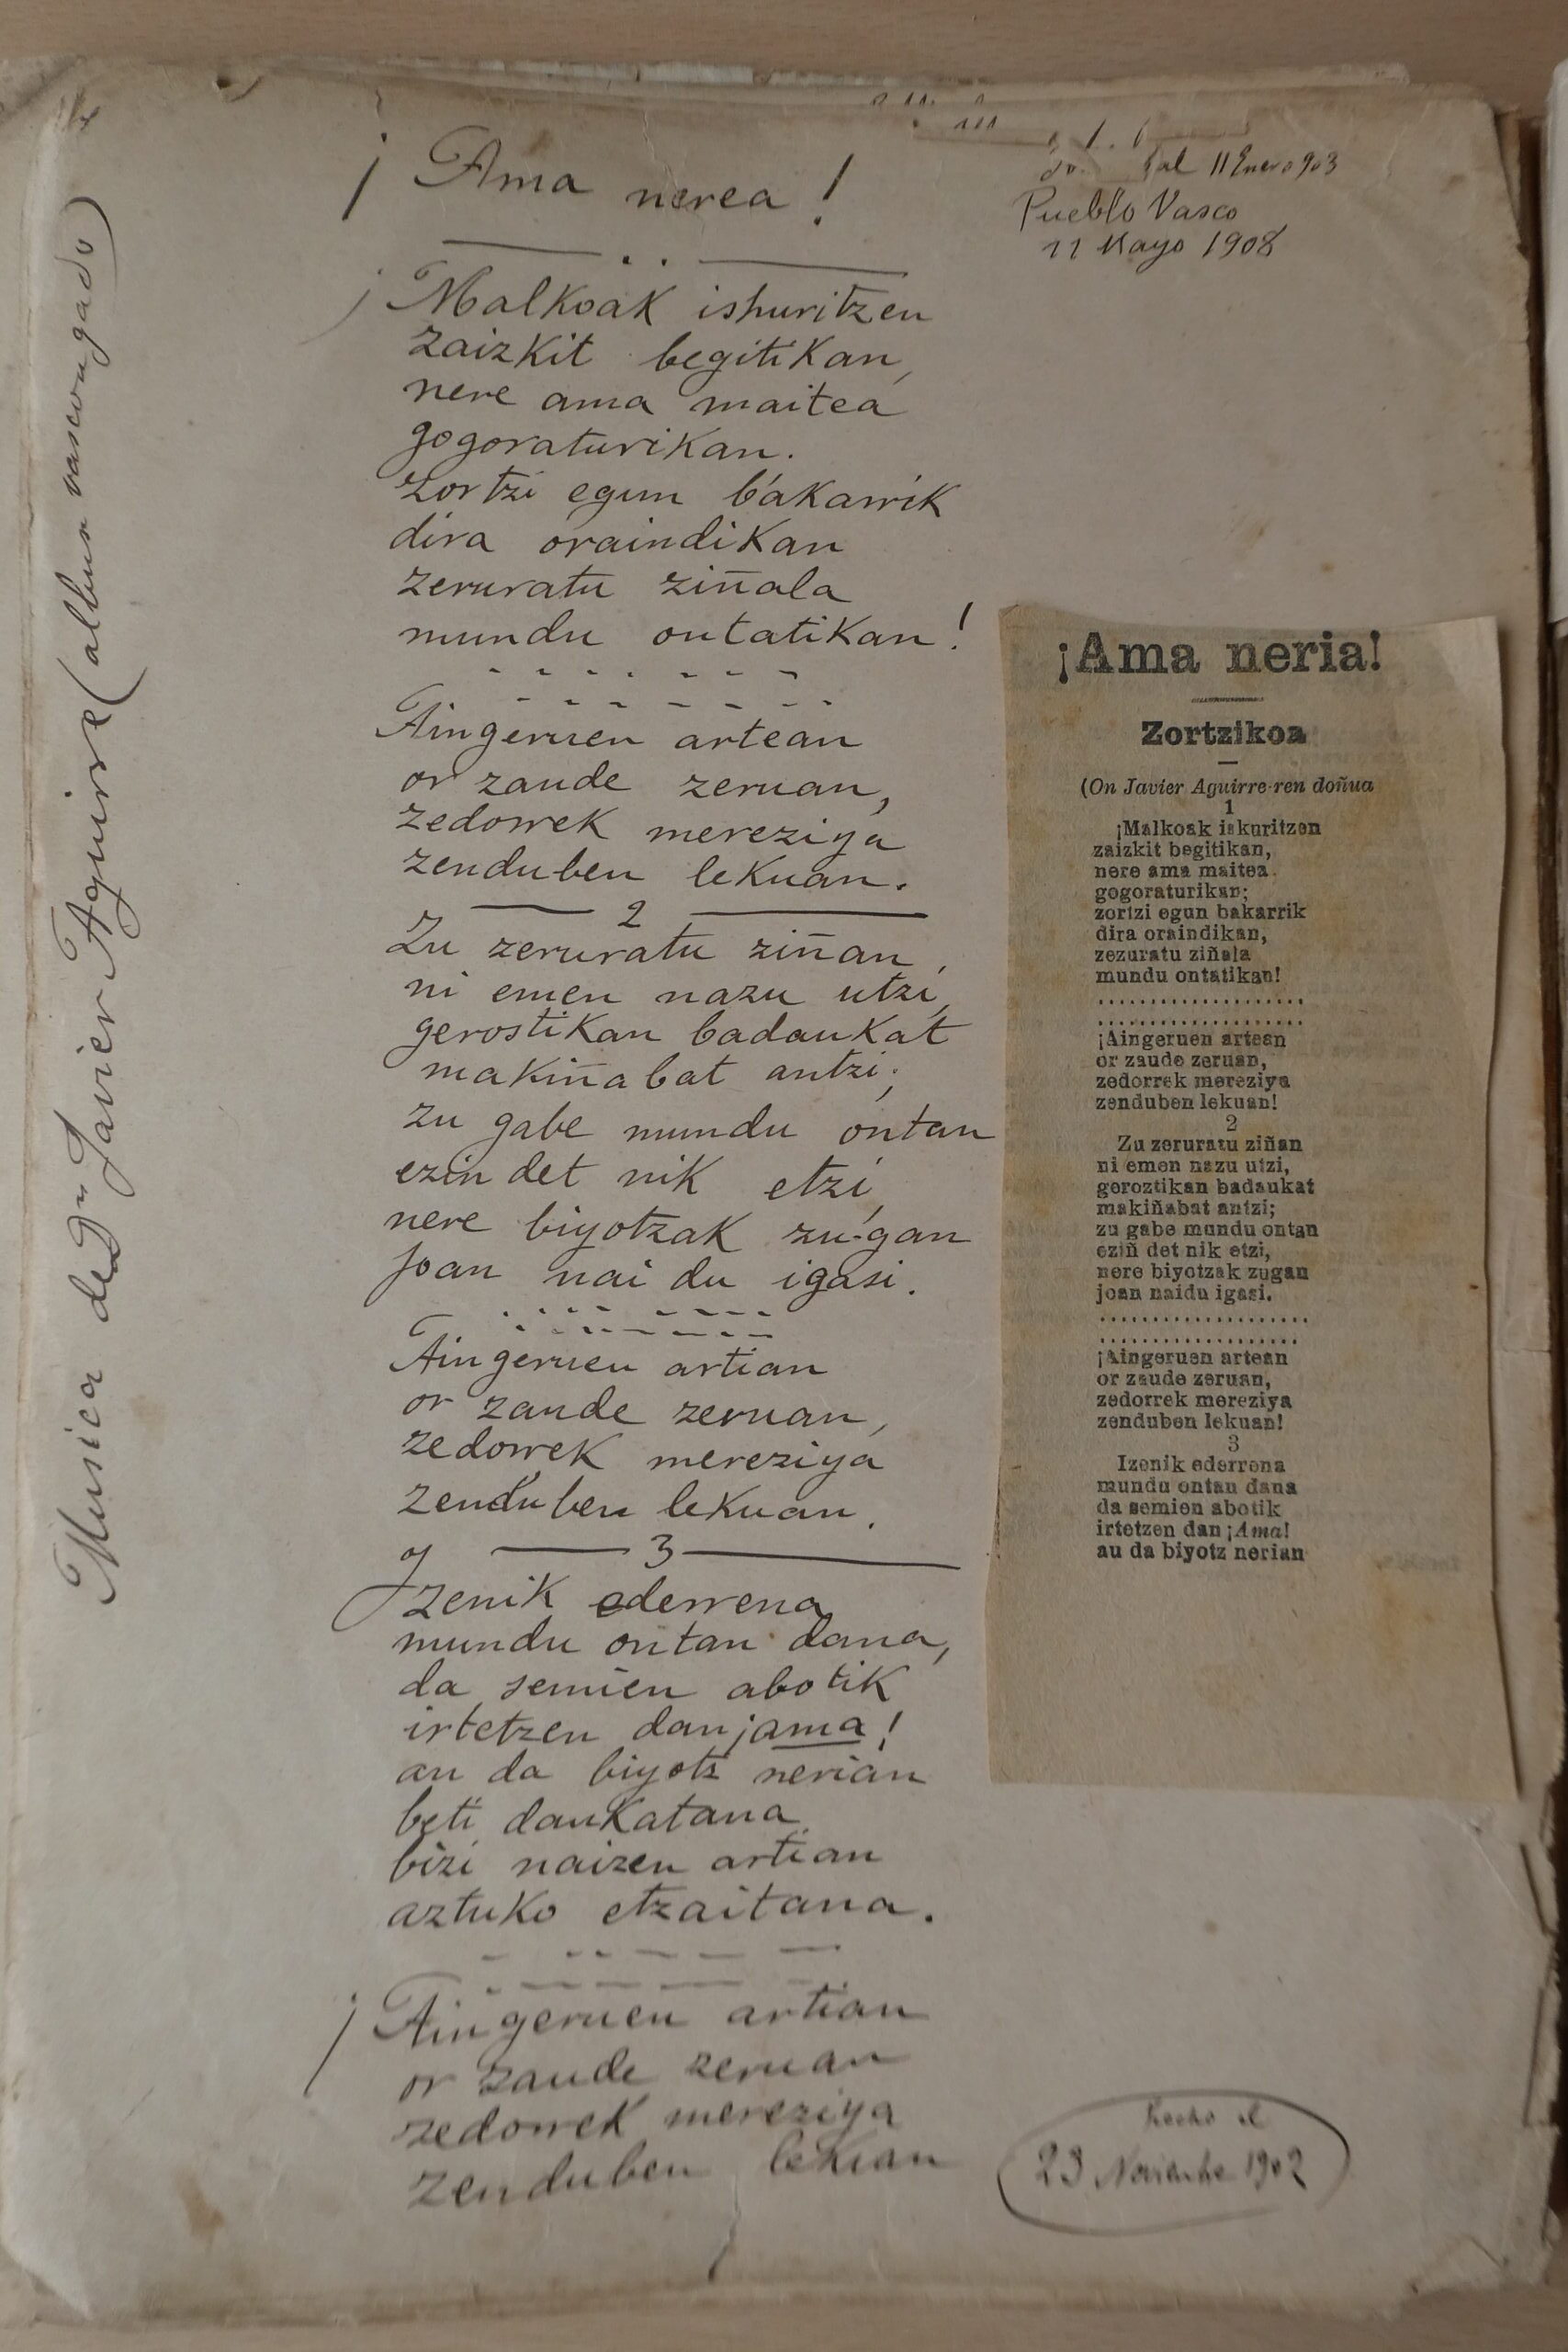 ¡Ama nerea!
al 11 Enero 903
Pueblo Vasco
11 Mayo 1908
¡Malkoak ishuritzen
zaizkit begitikan,
nere ama maitea
gogoraturikan.
zortzi egun bakarrik
dira oraindikan
zeruratu ziñala
mundu ontatikan!
Aingeruen artean
or zaude zeruan,
zedorrek mereziya
zenduben lekuan.
2
Zu zeruratu ziñan,
ni emen nazu utzi,
gerostikan badaukat
makiña bat antzi;
zu gabe mundu ontan
ezin det nik etzi,
nere biyotzak zu-gan
joan nai du igasi.
Aingeruen artian
or zaude zeruan,
zedorrek mereziya
zenduben lekuan.
3
Izenik ederrena
mundu ontan dana,
da semien abotik
irtetzen dan ¡ama!
au da biyotz nerian
beti daukatana
bizi naizen artian
aztuko etzaitana.
¡Aingeruen artian
or zaude zeruan
zedorrek mereziya
zenduben lekuan
Hecho el
23 Noviembre 1902
Musica de Dn Javier Aguirre (album vascongado)
¡Ama neria!
Zortzikoa
(On Javier Aguirre-ren doñua
1
¡Malkoak iskuritzen
zaizkit begitikan,
nere ama maitea
gogoraturikan;
zortzi egun bakarrik
dira oraindikan,
zezuratu ziñala
mundu ontatikan!
....................
....................
¡Aingeruen artean
or zaude zeruan,
zedorrek mereziya
zenduben lekuan!
2
Zu zeruratu ziñan
ni emen nazu utzi,
geroztikan badaukat
makiñabat antzi;
zu gabe mundu ontan
eziñ det nik etzi,
nere biyotzak zugan
joan naidu igasi.
....................
....................
¡Aingeruen artean
or zaude zeruan,
zedorrek mereziya
zenduben lekuan!
3
Izenik ederrena
mundu ontan dana
da semien abotik
irtetzen dan ¡Ama!
au da biyotz nerian